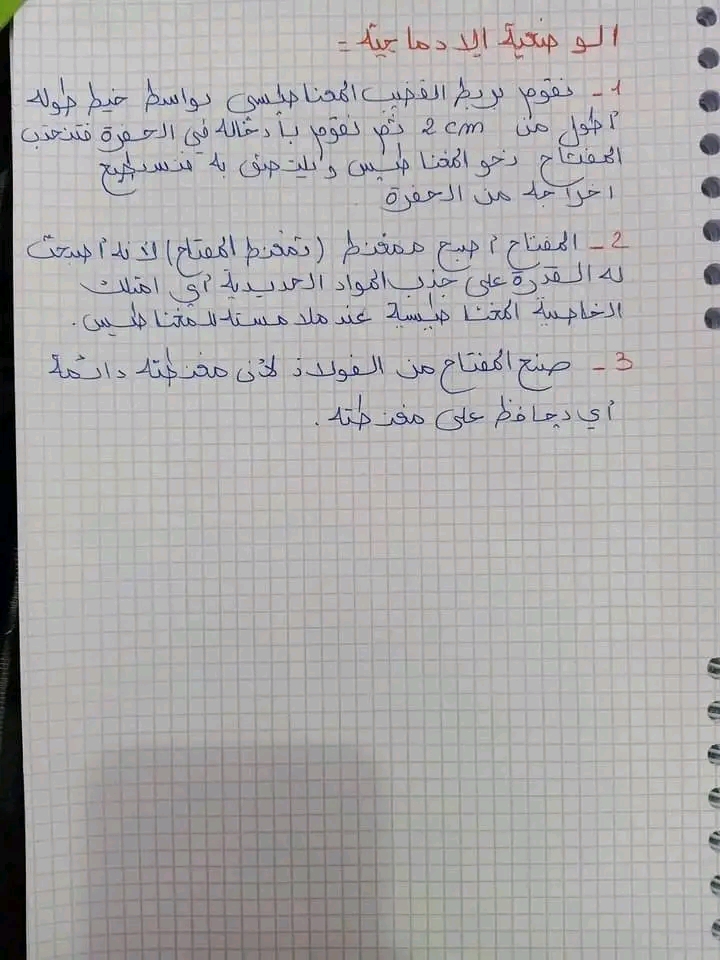 الوضعية الإدماجية =
1- نقوم بربط القضيب المغناطيسي بواسط خيط طوله
أطول من 2 cm ثم نقوم بأدخاله في الحفرة فتنجذب
المفتاح نحو المغناطيس ويلتصق به فنستطيع
اخراجه من الحفرة
2- المفتاح أصبح ممغنط (تمغنط المفتاح) لأنه أصبحت
له القدرة على جذب المواد الحديدية أي امتلك
الخاصية المغناطيسية عند ملامسته للمغناطيس.
3- صنع المفتاح من الفولاذ لأن مغنطته دائمة
أي يحافظ على مغنطته.